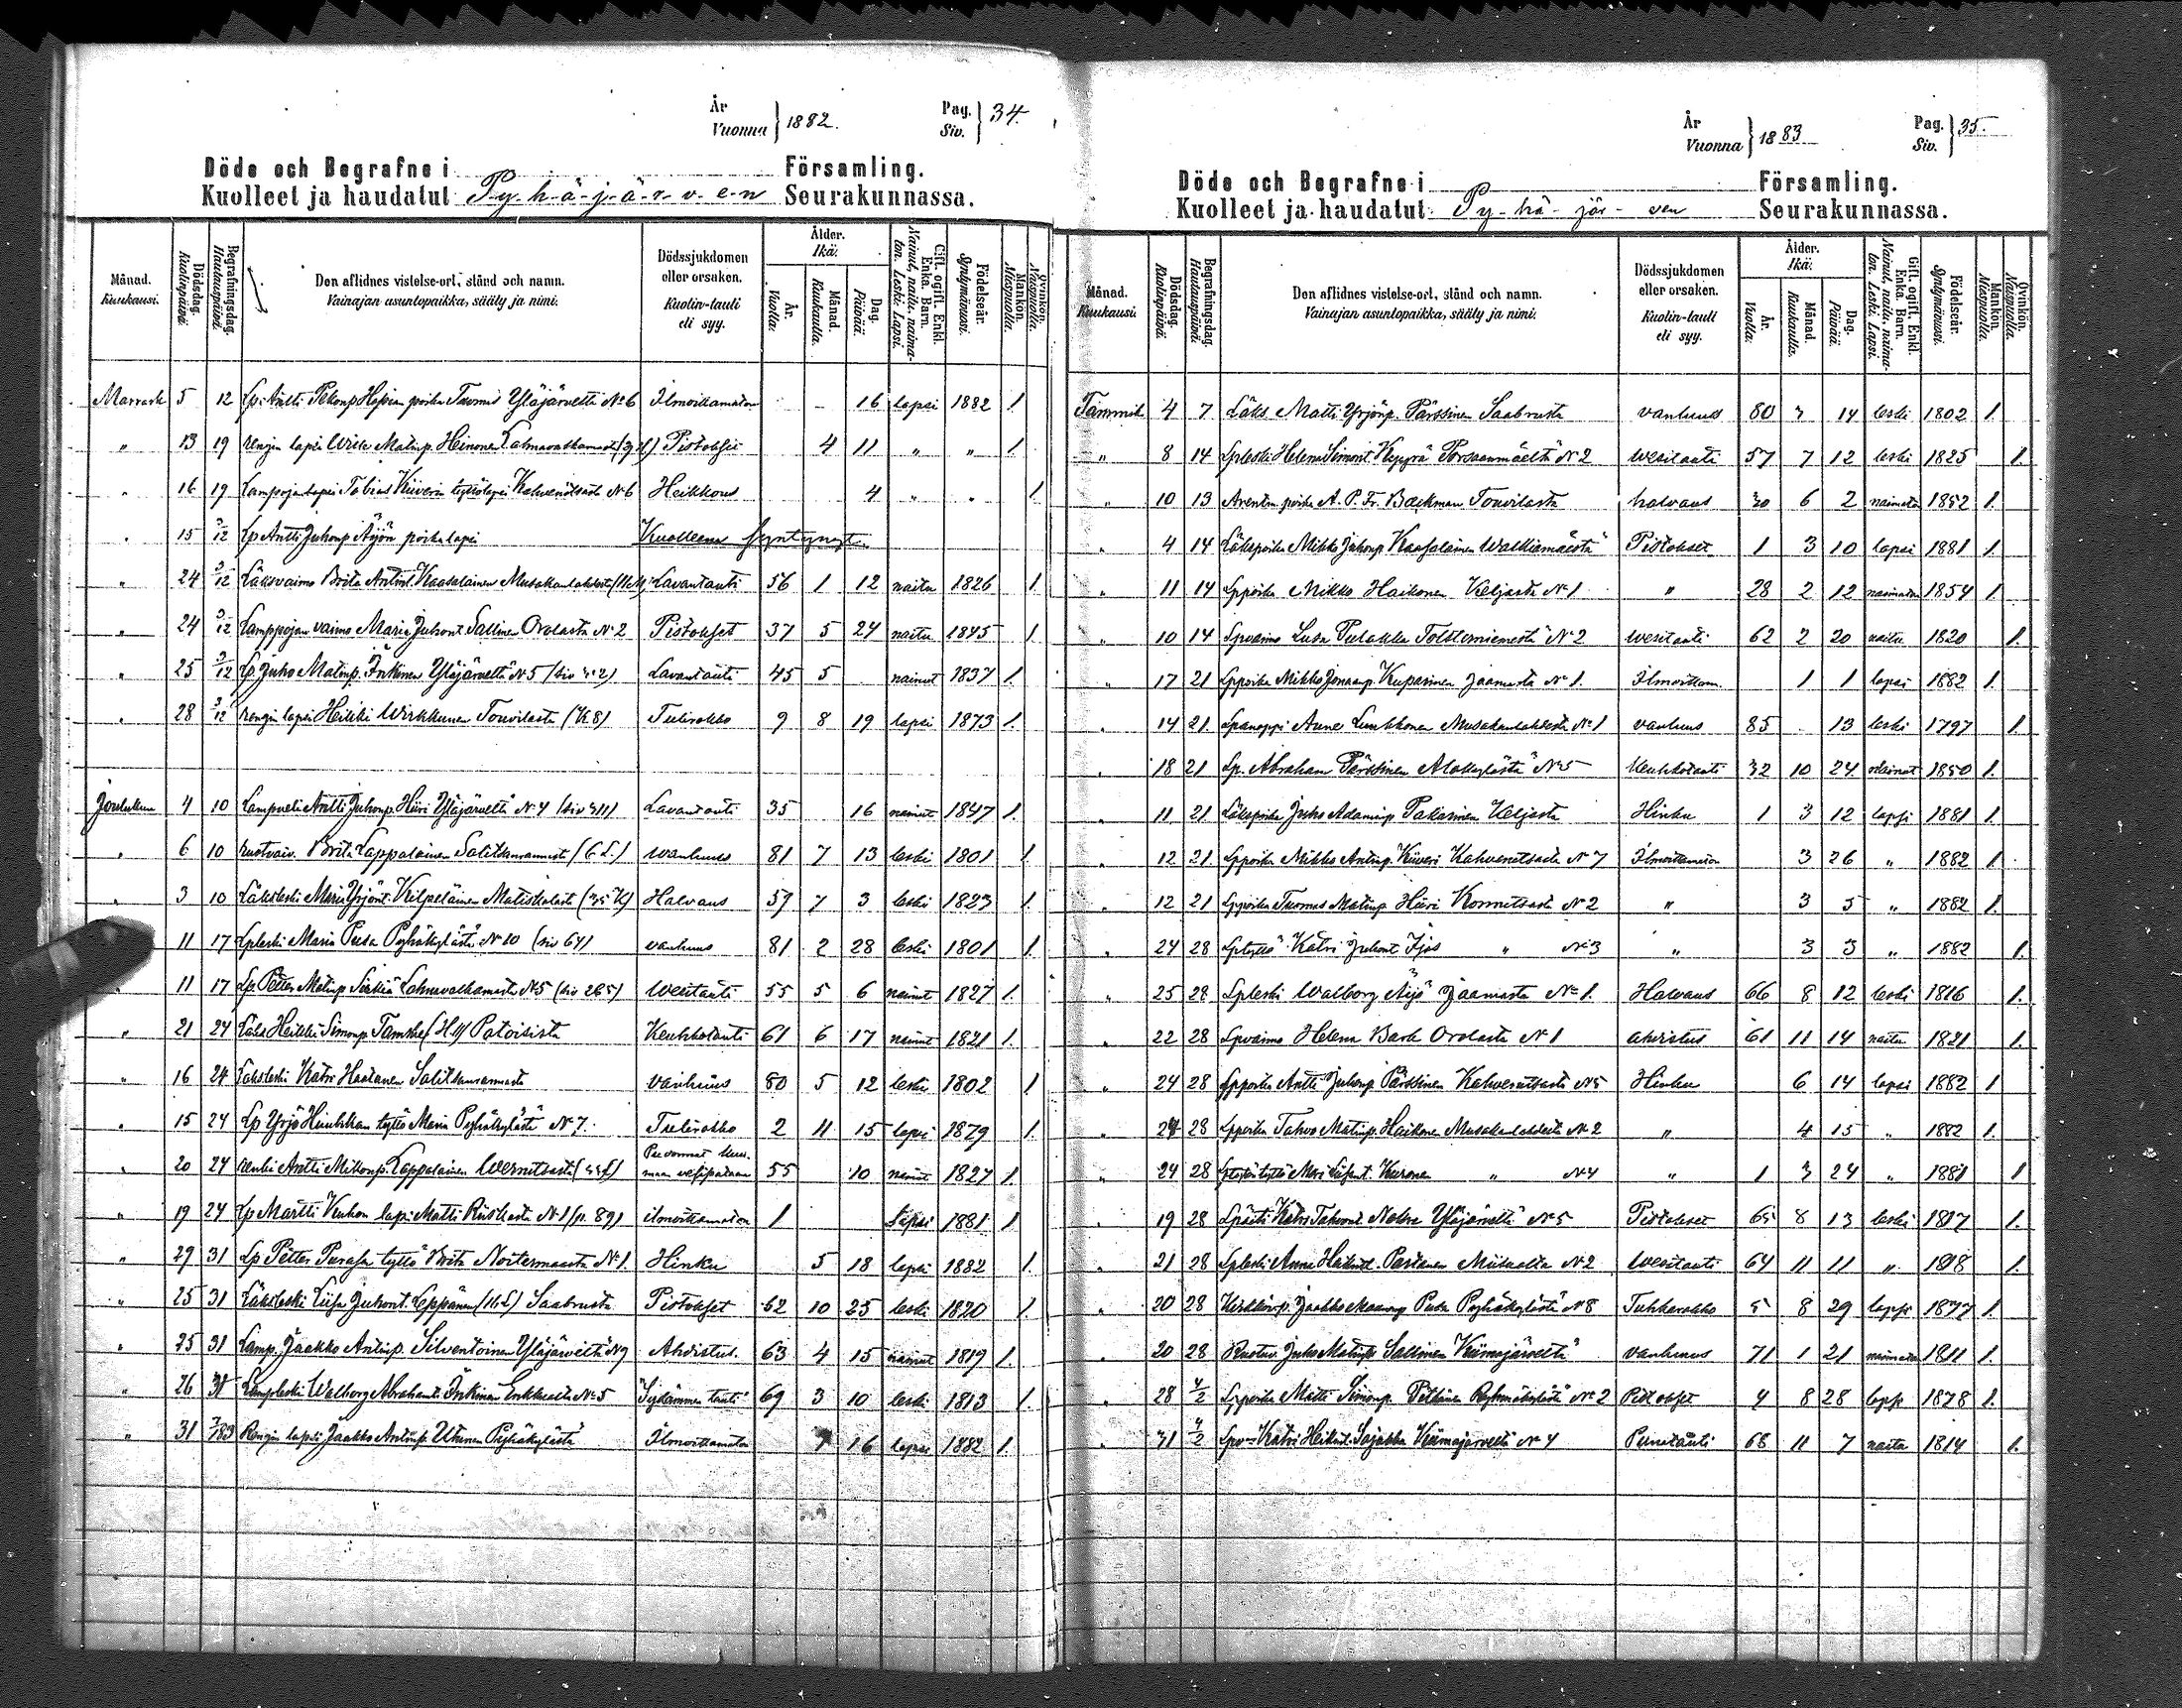 År
Vuonna } 1882.
Pag.
Siv. } 34.
Döde och Begrafne i Församling.
Kuolleet ja haudatut P-y-h-ä-j-ä-r-v-e-n Seurakunnassa.
Månad. Kuukausi.
Dödsdag. Kuolinpäivä.
Begrafningsdag. Hautauspäivä.
Den aflidnes vistelse-ort, stånd och namn.
Vainajan asuntopaikka, sääty ja nimi.
Dödssjukdomen eller orsaken.
Kuolin-tauti eli syy.
Ålder. Ikä.
År. Vuotta.
Månad. Kuukautta.
Dag. Päivää.
Gift, ogift, Enkl. Enka. Barn.
Nainut, naitu, naimaton. Leski. Lapsi.
Födelseår. Syntymävuosi.
Mankön. Miespuolia.
Qvinkön. Naispuolia.
Marrask 5 12 Lp. Antti Pekonp poika Tuomas Yläjärveltä No 6 Ilmoittamaton 16 lapsi 1882 1.
" 13 19 rengin lapsi Matinp. Heinonen Pistokset 4 11 " " 1
" 16 19 Tobias Kiiverin tyttölapsi Kahvenitsasta No 6 Heikkous 4 " " 1.
" 15 3/12 Lp Antti Juhonp Äijön poikalapsi Kuolleena syntynyt
" 24 3/12 Läksvaimo Brita Antint. Kaasalainen Musakanlahdesta Lavantauti 56 1 12 naitu 1826 1.
" 24 3/12 Lamppojan vaimo Maria Juhont Sallinen Orolasta No 2 Pistokset 37 5 24 naitu 1845 1.
" 25 3/12 Lp. Juho Matinp. Inkinen Yläjärveltä No 5 Lavantauti 45 5 nainut 1837 1.
" 28 3/12 rengin lapsi Heikki Wirkkunen Touvilasta (K 8) Tulirokko 9 8 19 lapsi 1873 1.
Joulukuu 4 10 Antti Juhonp. Hiiri Yläjärveltä No 4 Lavantauti 35 16 nainut 1847 1.
" 6 10 Brita Lappalainen Salitsanrannasta wanhuus 81 7 13 leski 1801 1.
" 3 10 Läksleski Maria Yrjönt. Kilpeläinen Matiskalasta Halvaus 59 7 3 leski 1823 1.
" 11 17 Lpleski Maria Pusa Pyhäkylästä No 10 (siv 64) vanhuus 81 2 28 leski 1801 1.
" 11 17 Lp. Petter Matinp Sirkiä No 5 (siv 265) Wesitauti 55 5 6 nainut 1827 1.
" 21 24 Läks Heikki Simonp Tamska Patoisista Keuhkotauti 61 6 17 nainut 1821 1.
" 16 24 Läksleski Katri Haatanen Salitsanrannasta vanhuus 80 5 12 leski 1802 1
" 15 24 Lp Yrjö tyttö Maria Pyhäkylästä No 7. Tulirokko 2 11 15 lapsi 1879 1.
" 20 24 renki Antti Mikonp. Lappalainen Wernitsasta 55 10 nainut 1827 1.
" 19 24 Lp Martti lapsi Matti Riiskasta No 1 (p. 89) ilmoittamaton 1 lapsi 1881 1
" 29 31 Lp Petter tyttö Brita Noitermaasta No 1. Hinku 5 18 lapsi 1882 1.
" 25 31 Läksleski Liisa Juhont. Leppänen Saaprusta Pistokset 62 10 25 leski 1820 1.
" 25 31 Lamp. Jaakko Antinp. Silventoinen Yläjärveltä No 9 Ahdistus. 63 4 15 nainut 1819 1.
" 26 31 Lampleski Walborg Abrahamt. Inkinen Enkkualta No 5 Sydämmen tauti 69 3 10 leski 1813 1.
" 31 7/1 83 Rengin lapsi Jaakko Antinp. Utunen Pyhäkylästä Ilmoittamaton 1 16 lapsi 1882 1.
År
Vuonna } 1883
Pag.
Siv. } 35.
Döde och Begrafne i Församling.
Kuolleet ja haudatut Py-hä-jär-ven Seurakunnassa.
Månad. Kuukausi.
Dödsdag. Kuolinpäivä.
Begrafningsdag. Hautauspäivä.
Den aflidnes vistelse-ort, stånd och namn.
Vainajan asuntopaikka, sääty ja nimi.
Dödssjukdomen eller orsaken.
Kuolin-tauti eli syy.
Ålder. Ikä.
År. Vuotta.
Månad. Kuukautta.
Dag. Päivää.
Gift, ogift, Enkl. Enka. Barn.
Nainut, naitu, naimaton. Leski. Lapsi.
Födelseår. Syntymävuosi.
Mankön. Miespuolia.
Qvinkön. Naispuolia.
Tammik 4 7 Läks. Matti Yrjönp. Pärssinen Saaprusta vanhuus 80 14 leski 1802 1.
" 8 14 Lpleski Helena Simont Kepprä No 2 Wesitauti 57 7 12 leski 1825 1.
" 10 13 poika A. P. Fr. Backman Touvilasta halvaus 30 6 2 naimaton 1852 1.
" 4 14 Läkspoika Mikko Juhonp Kaasalainen Walkiamäestä Pistokset 1 3 10 lapsi 1881 1.
" 11 14 Lppoika Mikko Haikonen Keljasta No 1 " 28 2 12 naimaton 1854 1.
" 10 14 Lpvaimo Luisa Pulakka No 2 Wesitauti 62 2 20 naitu 1820 1.
" 17 21 Lppoika Mikko Joonanp. Kuparinen Jaamasta No 1. Ilmoittam. 1 1 lapsi 1882 1.
" 14 21 Anna Lunkkonen Musakanlahdesta No 1 vanhuus 85 13 leski 1797 1.
" 18 21 Lp. Abraham Pärssinen Alakylästä No 5 Keuhkotauti 32 10 24 nainut 1850 1.
" 11 21 Läkspoika Juho Adaminp Pakarinen Keljasta Hinku 1 3 12 lapsi 1881 1.
" 12 21 Lppoika Mikko Antinp. Kiiveri Kahvenitsasta No 7 Ilmoittamaton 3 26 " 1882 1.
" 12 21 Lppoika Tuomas Matinp Hiiri Konnitsasta No 2 " 3 5 " 1882 1.
" 24 28 Lptyttö Katri Juhont Ijäs " No 3 " 3 3 " 1882 1.
" 25 28 Lpleski Walborg Äijö Jaamasta No 1. Halvaus 66 8 12 leski 1816 1.
" 22 28 Lpvaimo Helena Orolasta No 1 ahdistus 61 11 14 naitu 1821 1.
" 24 28 Lppoika Antti Juhonp Pärssinen Kahvenitsasta No 5 Hinku 6 14 lapsi 1882 1
" 24 28 Lppoika Tahvo Matinp. Haikonen Musakanlahdesta No 2 " 4 15 " 1882 1.
" 24 28 Mari Kuronen " No 4 " 1 3 24 " 1881 1
" 19 28 Katri Tahvont. Yläjärveltä No 5 Pistokset 65 8 13 leski 1817 1.
" 21 28 Lpleski Anna Heikint. Partanen Miisualta No 2 Wesitauti 64 11 11 " 1818 1.
" 20 28 Jaakko Pusa Pyhäkylästä No 8 Tuhkarokko 5 8 29 lapsi 1877 1.
" 20 28 Juho Matinp Sallinen Kiimajärveltä vanhuus 71 1 21 naimaton 1811 1.
" 28 4/2 Lppoika Matti Simonp. No 2 Pistokset 4 8 28 lapsi 1878 1.
" 31 4/2 Katri Heikint. Kiimajärveltä No 4 Punatauti 68 11 7 naitu 1814 1.